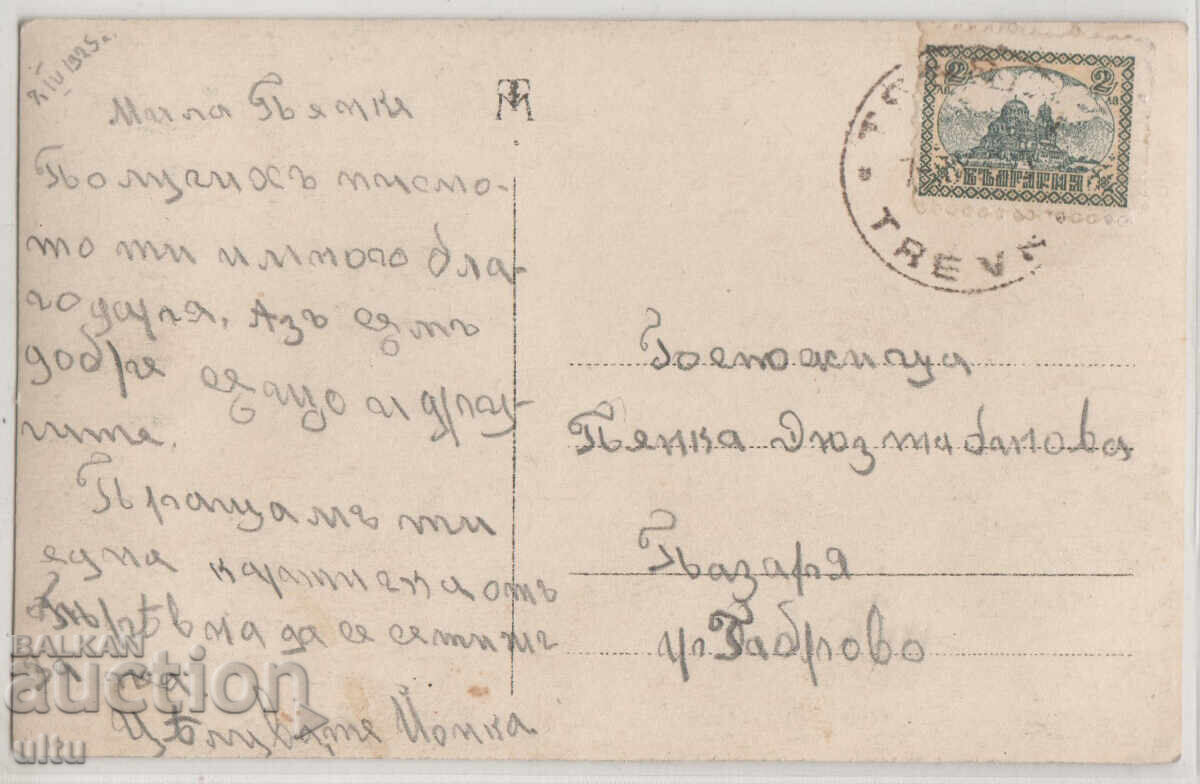 7. IV 1925 г.
Мила Пенка
Получихъ писмо-
то ти и много бла-
годаря. Азъ съмъ
добре също и дру-
гите.
Пращамъ ти
една картичка отъ
Трѣвна да се сетишъ
за
Цѣлувате Йонка
2 лв 2 лв
БЪЛГАРИЯ
TREV
Госпожица
Пенка Дюзтабанова
Пазаря
гр Габрово
BALKAN
auction
ultu